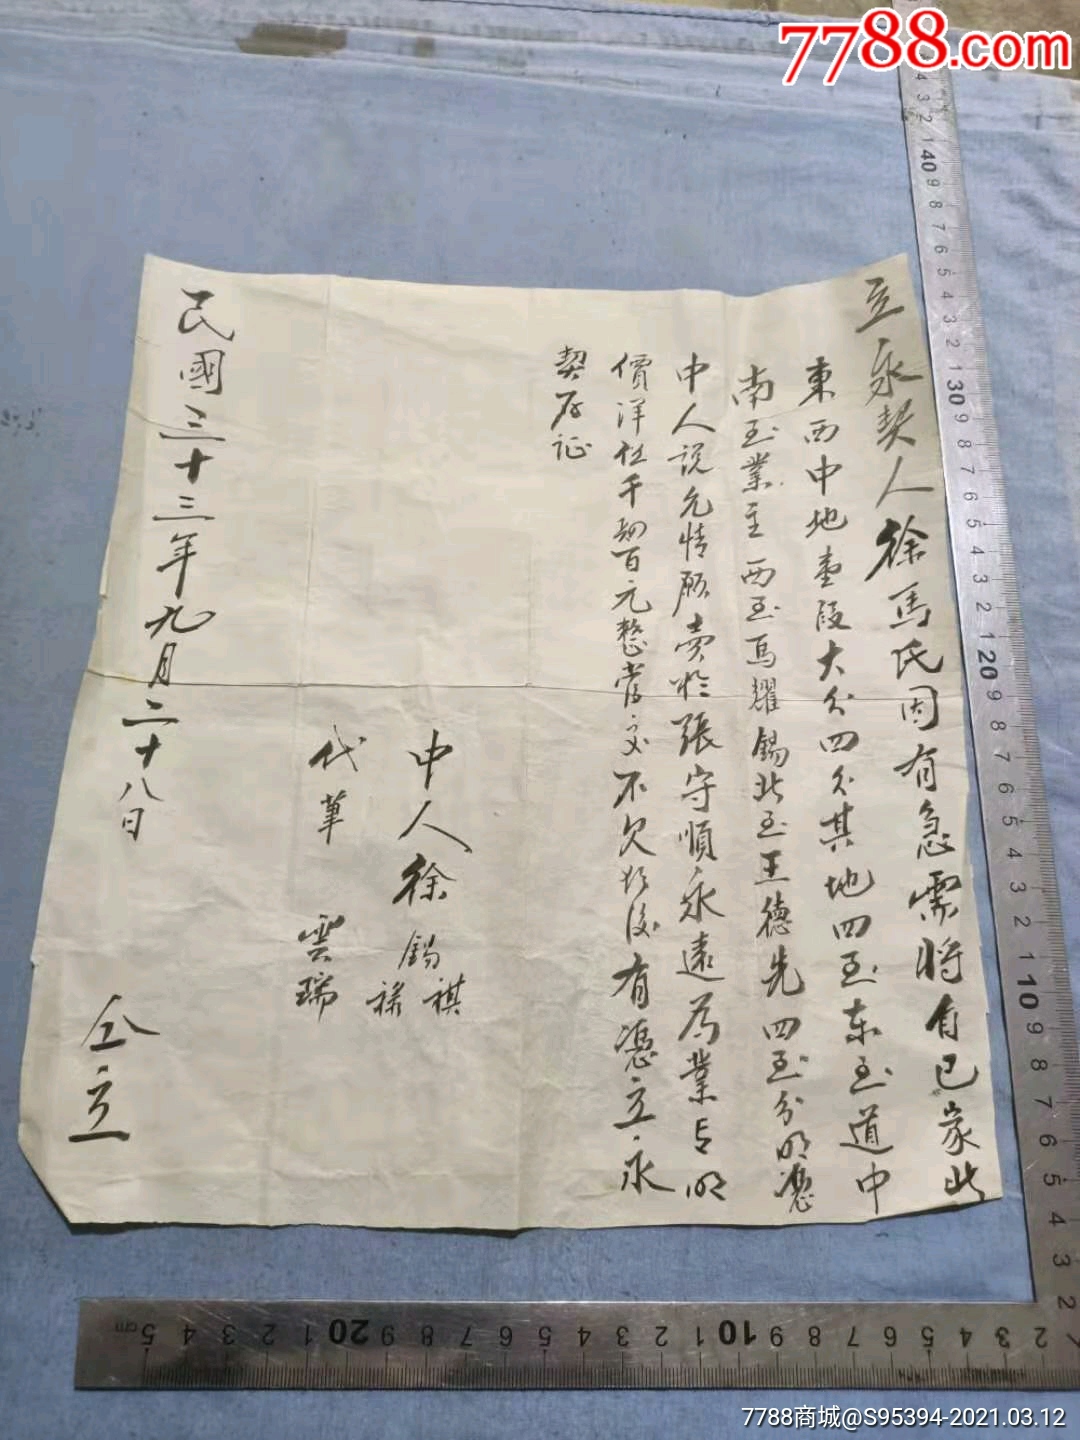 7788.com
立永契人徐馬氏因有急需將自己家北
東西中地壹段大分四分其地四至东至道中
南至業主西至馬耀錫北至王德先四至分明憑
中人说允情願賣於張守順永遠为業言明
價洋伍千捌百元整當交不欠恐後有憑立永
契存证
中人徐錫祺
禄
代筆雲瑞
民國三十三年九月二十八日
仝立
7788商城@S95394-2021.03.12